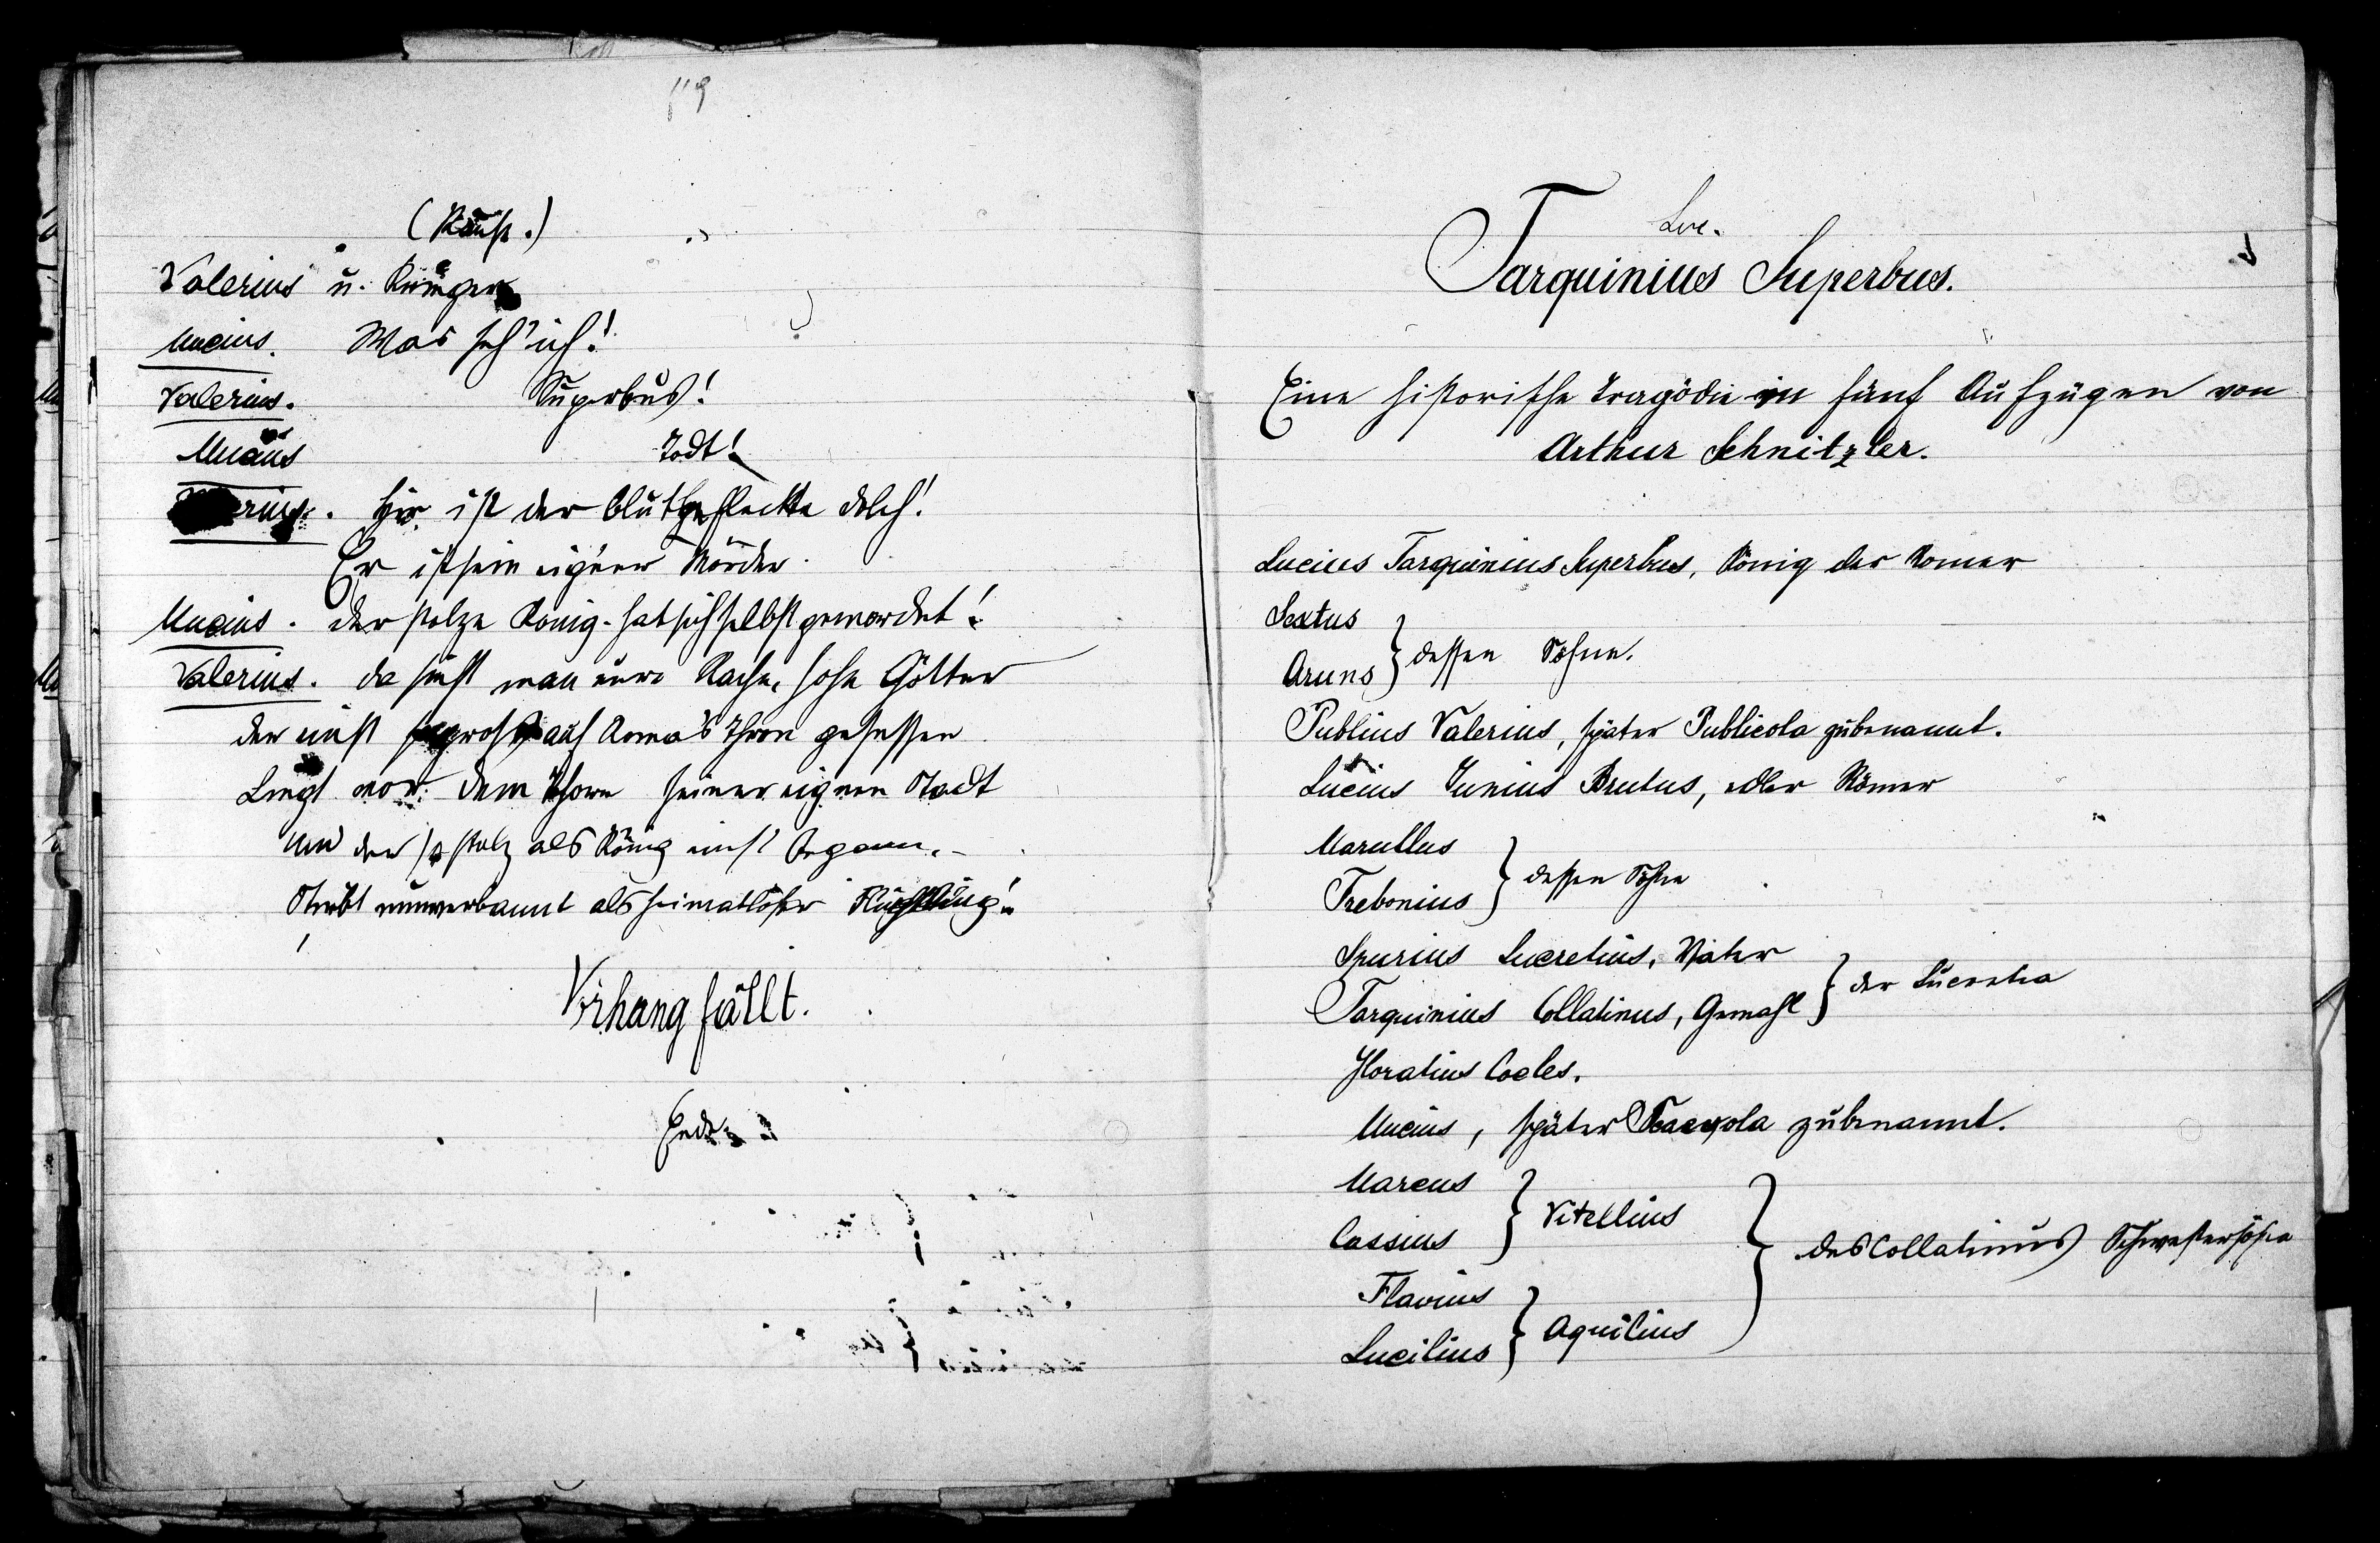 119
(Pause.)
Valerius u. Krieger
Mucius. Was seh' ich!
Valerius. Superbus!
Mucius Todt!
Valerius. Hier ist der blutgefleckte Dolch!
Er ist sein eig'ner Mörder.
Mucius. Der stolze König - hat sich selbst gemordet!
Valerius. Da sieht man eure Rache, hohe Götter
Der einst so groß auf Roma's Thron gesessen
Liegt vor dem Thore seiner eignen Stadt
Und der so stolz als König einst begann, -
Stirbt nun verbannt als heimatloser Flüchtling!
Vorhang fällt.
Ende
Luc.
Tarquinius Superbus.
Eine historische Tragödie in fünf Aufzügen von
Arthur Schnitzler.
Lucius Tarquinius Superbus, König der Römer
Sextus
Aruns } dessen Söhne.
Publius Valerius, später Publicola zubenannt.
Lucius Junius Brutus, edler Römer
Marullus
Trebonius } dessen Söhne
Spurius Lucretius, Vater
Tarquinius Collatinus, Gemahl } der Lucretia
Horatius Cocles.
Mucius, später Scaevola zubenannt.
Marcus
Cassius } Vitellius
Flavius
Lucilius } Aquilius
} des Collatinus Schwestersöhne